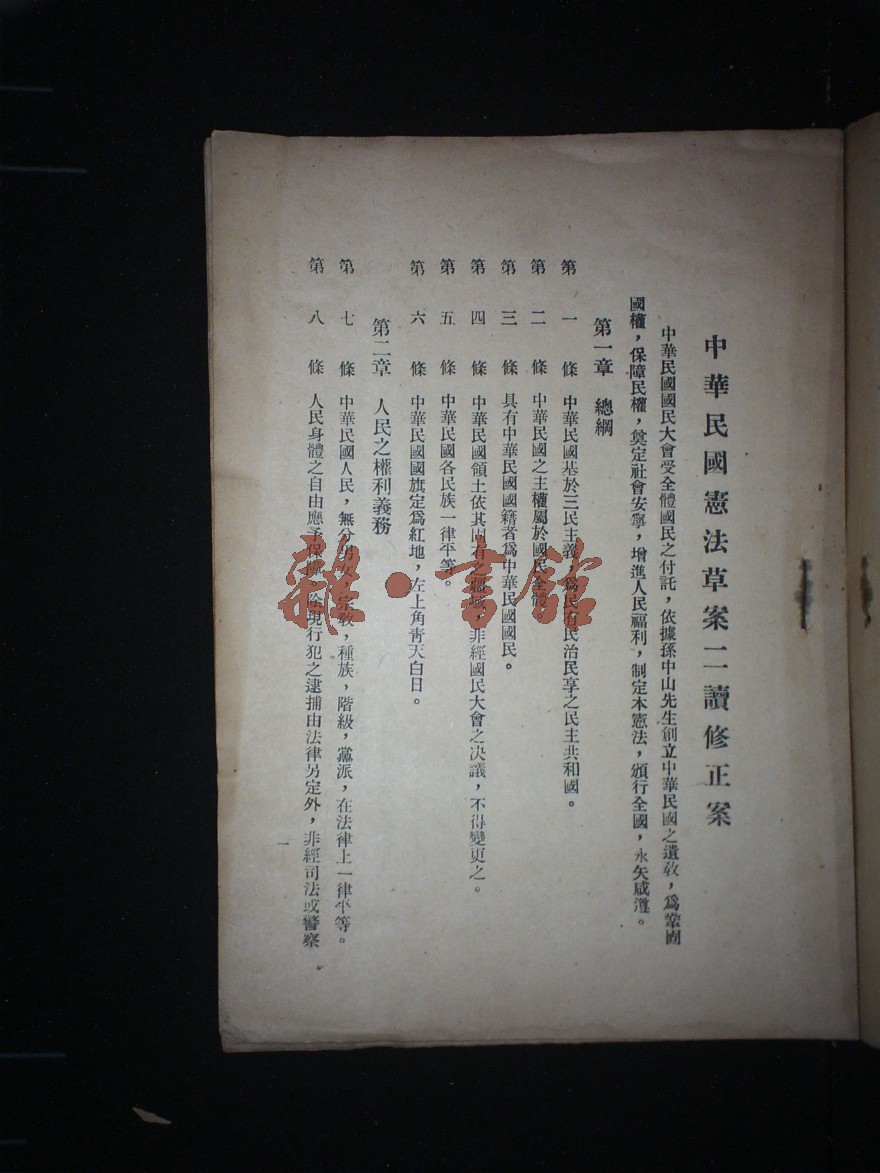 中華民國憲法草案二讀修正案
中華民國國民大會受全體國民之付託，依據孫中山先生創立中華民國之遺教，爲鞏固
國權，保障民權，奠定社會安寧，增進人民福利，制定本憲法，頒行全國，永矢咸遵。
第一章　總綱
第一條　中華民國基於三民主義，爲民有民治民享之民主共和國。
第二條　中華民國之主權屬於國民全體。
第三條　具有中華民國國籍者爲中華民國國民。
第四條　中華民國領土依其固有之疆域，非經國民大會之决議，不得變更之。
第五條　中華民國各民族一律平等。
第六條　中華民國國旗定爲紅地，左上角靑天白日。
第二章　人民之權利義務
第七條　中華民國人民，無分男女，宗教，種族，階級，黨派，在法律上一律平等。
第八條　人民身體之自由應予保障。除現行犯之逮捕由法律另定外，非經司法或警察
一
雜·書館